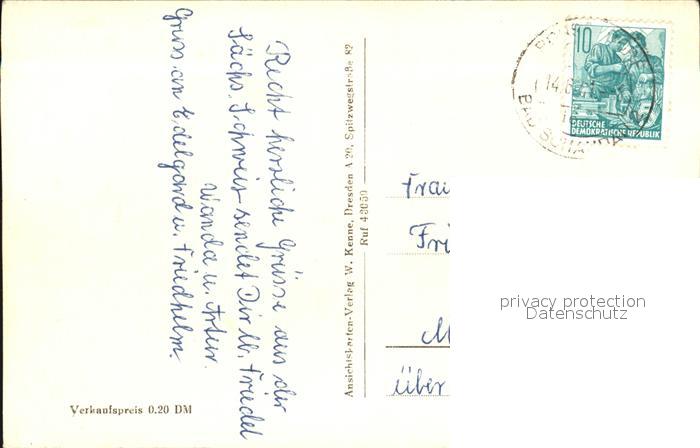 Recht herzliche Grüsse aus der
Sächs. Schweiz sendet Dir lb. Friedel
Wanda u. Artur.
Gruss an Edelgard u. Friedhelm.
Verkaufspreis 0.20 DM
Ansichtskarten-Verlag W. Kenne, Dresden A 20, Spitzwegstraße 82
Ruf 43059
10
DEUTSCHE
DEMOKRATISCHE REPUBLIK
BAD SCHANDAU
Frau
Fri
M
über
privacy protection
Datenschutz